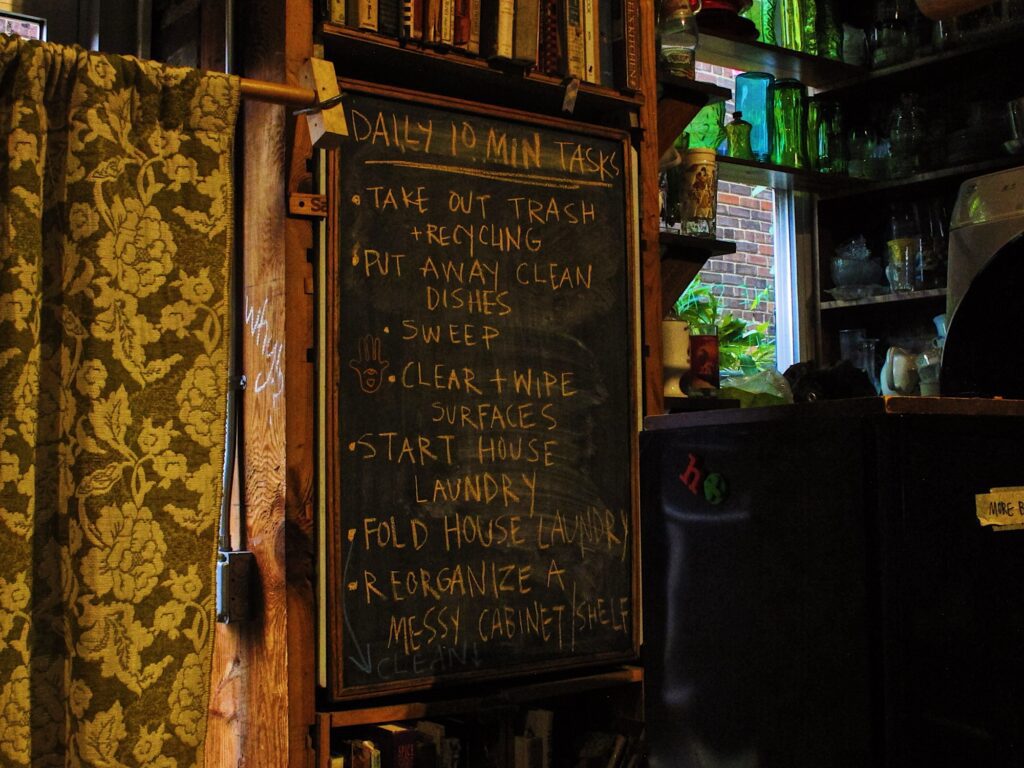 DAILY 10 MIN TASKS
• TAKE OUT TRASH
+ RECYCLING
• PUT AWAY CLEAN
DISHES
• SWEEP
• CLEAR + WIPE
SURFACES
• START HOUSE
LAUNDRY
• FOLD HOUSE LAUNDRY
• REORGANIZE A
MESSY CABINET/SHELF
CLEAN!
h
MORE B